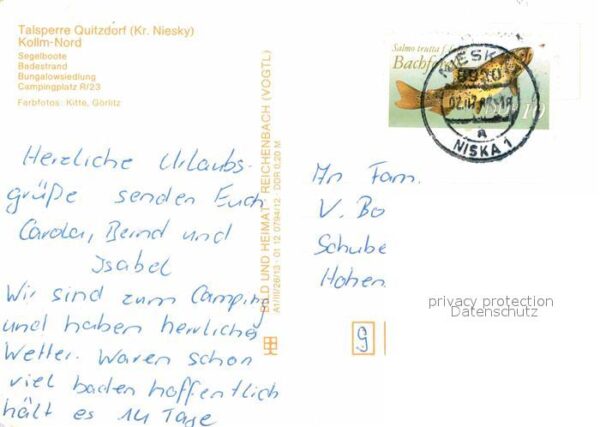 Talsperre Quitzdorf (Kr. Niesky)
Kollm-Nord
Segelboote
Badestrand
Bungalowsiedlung
Campingplatz R/23
Farbfotos: Kitte, Görlitz
Herzliche Urlaubs-
grüße senden Euch
Carola, Bernd und
Isabel
Wir sind zum Camping
und haben herrliches
Wetter. Waren schon
viel baden hoffentlich
hält es 14 Tage
BILD UND HEIMAT REICHENBACH (VOGTL)
A1/III/26/13 · 01 12 0794/12 DDR 0,20 M
Salmo trutta f.
Bachfo
10
NIESK
a
NISKA 1
An Fam.
V. Bo
Schube
Hohen
9
privacy protection
Datenschutz